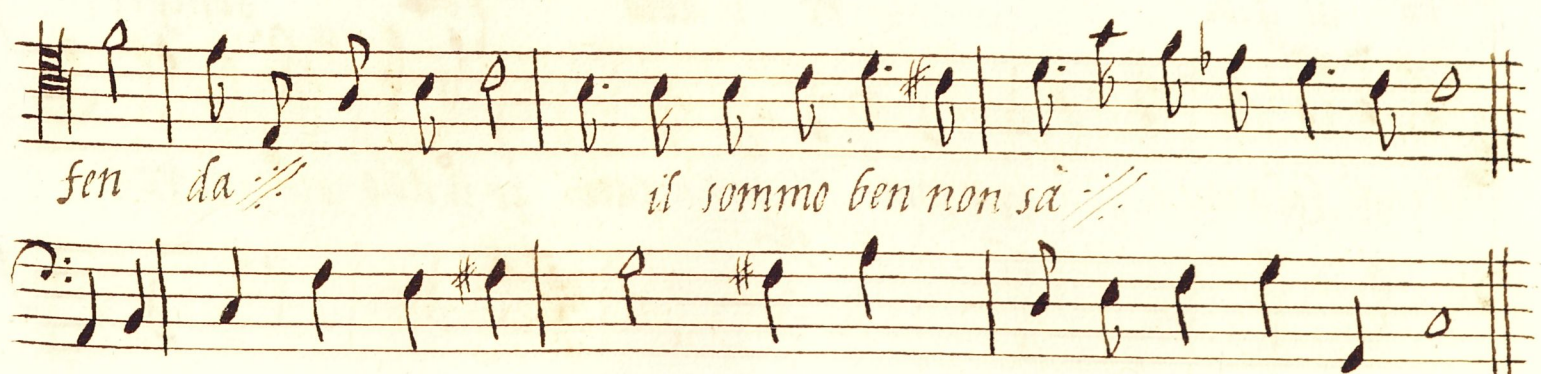 fen da :// il sommo ben non sà ://